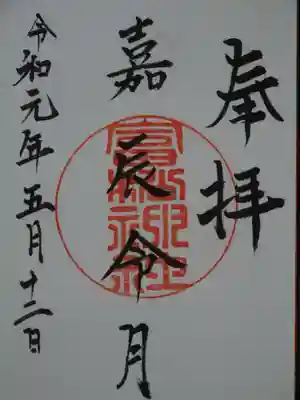 奉拝
嘉辰令月
令和元年五月十二日